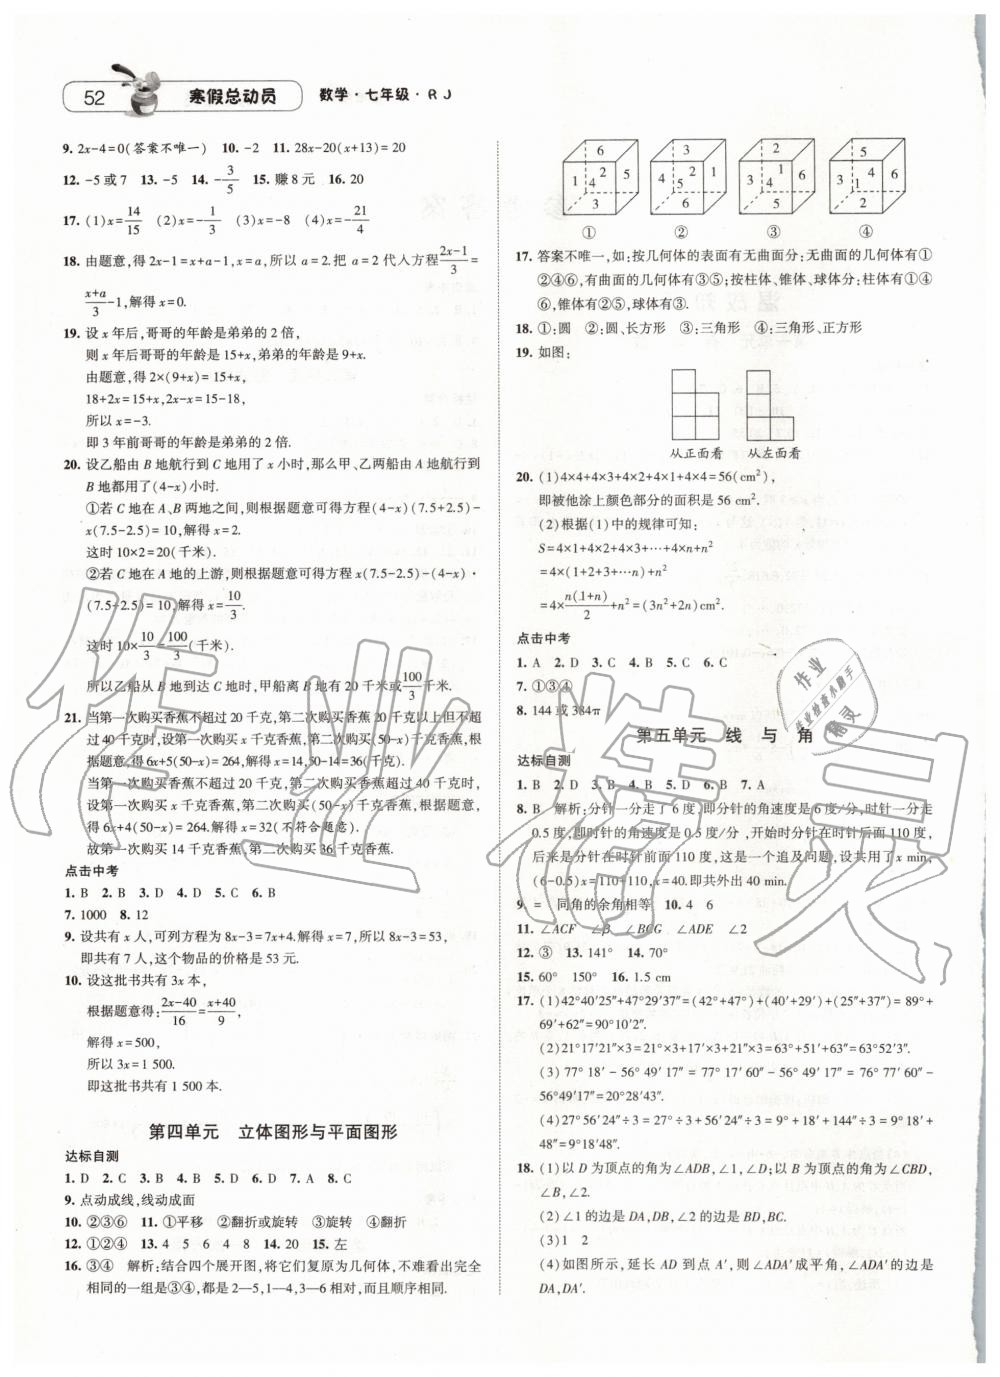 52 寒假总动员 数学·七年级·RJ
9. 2x-4=0(答案不唯一) 10. -2 11. 28x-20(x+13)=20
12. -5或7 13. -5 14. -3/5 15. 赚8元 16. 20
17. (1)x=14/15 (2)x=-1/3 (3)x=-8 (4)x=-21/4
18. 由题意,得2x-1=x+a-1,x=a,所以a=2.把a=2代人方程(2x-1)/3=
(x+a)/3-1,解得x=0.
19. 设x年后,哥哥的年龄是弟弟的2倍,
则x年后哥哥的年龄是15+x,弟弟的年龄是9+x.
由题意,得2×(9+x)=15+x,
18+2x=15+x,2x-x=15-18,
所以x=-3.
即3年前哥哥的年龄是弟弟的2倍.
20. 设乙船由B地航行到C地用了x小时,那么甲、乙两船由A地航行到
B地都用了(4-x)小时.
①若C地在A、B两地之间,则根据题意可得方程(4-x)(7.5+2.5)-
x(7.5-2.5)=10,解得x=2.
这时10×2=20(千米).
②若C地在A地的上游,则根据题意可得方程x(7.5-2.5)-(4-x)·
(7.5+2.5)=10,解得x=10/3.
这时10×10/3=100/3(千米).
所以乙船从B地到达C地时,甲船离B地有20千米或100/3千米.
21. 当第一次购买香蕉不超过20千克,第二次购买香蕉20千克以上但不超
过40千克时,设第一次购买x千克香蕉,第二次购买(50-x)千克香蕉,
根据题意,得6x+5(50-x)=264,解得x=14,50-14=36(千克).
当第一次购买香蕉不超过20千克,第二次购买香蕉超过40千克时,
设第一次购买x千克香蕉,第二次购买(50-x)千克香蕉,根据题意,
得6x+4(50-x)=264.解得x=32(不符合题意).
故第一次购买14千克香蕉,第二次购买36千克香蕉.
点击中考
1. B 2. B 3. B 4. D 5. C 6. B
7. 1000 8. 12
9. 设共有x人,可列方程为8x-3=7x+4.解得x=7,所以8x-3=53,
即共有7人,这个物品的价格是53元.
10. 设这批书共有3x本,
根据题意得:(2x-40)/16=(x+40)/9,
解得x=500,
所以3x=1 500.
即这批书共有1 500本.
第四单元 立体图形与平面图形
达标自测
1. D 2. C 3. B 4. B 5. D 6. D 7. A 8. C
9. 点动成线,线动成面
10. ②③⑥ 11. ①平移 ②翻折或旋转 ③旋转 ④翻折
12. ①②④ 13. 4 5 6 4 8 14. 20 15. 左
16. ③④ 解析:结合四个展开图,将它们复原为几何体,不难看出完全
相同的一组是③④,都是2—5,1—4,3—6相对,而且顺序相同.
6 1 2 5 4 3
3 1 2 4 5 6
2 1 3 4 6 5
5 2 4 3 1 6
① ② ③ ④
17. 答案不唯一,如:按几何体的表面有无曲面分:无曲面的几何体有①
②④⑥,有曲面的几何体有③⑤;按柱体、锥体、球体分:柱体有①④
⑥,锥体有②⑤,球体有③.
18. ①:圆 ②:圆、长方形 ③:三角形 ④:三角形、正方形
19. 如图:
从正面看 从左面看
20. (1)4×4+4×3+4×2+4×1+4×4=56(cm²),
即被他涂上颜色部分的面积是56 cm².
(2)根据(1)中的规律可知:
S=4×1+4×2+4×3+…+4×n+n²
=4×(1+2+3+…+n)+n²
=4×n(1+n)/2+n²=(3n²+2n)cm².
点击中考
1. A 2. D 3. C 4. B 5. C 6. C
7. ①③④
8. 144或384π
第五单元 线与角
达标自测
1. B 2. D 3. C 4. B 5. B 6. B 7. A
8. B 解析:分针一分走了6度,即分针的角速度是6度/分,时针一分走
0.5度,即时针的角速度是0.5度/分,开始时分针在时针后面110度,
后来是分针在时针前面110度,这是一个追及问题,设共用了x min,
(6-0.5)x=110+110,x=40.即共外出40 min.
9. = 同角的余角相等 10. 4 6
11. ∠ACF ∠β ∠BCG ∠ADE ∠2
12. ③ 13. 141° 14. 70°
15. 60° 150° 16. 1.5 cm
17. (1)42°40′25″+47°29′37″=(42°+47°)+(40′+29′)+(25″+37″)=89°+
69′+62″=90°10′2″.
(2)21°17′21″×3=21°×3+17′×3+21″×3=63°+51′+63″=63°52′3″.
(3)77°18′-56°49′17″=77°17′60″-56°49′17″=76°77′60″-
56°49′17″=20°28′43″.
(4)27°56′24″÷3=27°÷3+56′24″÷3=9°+18′+144″÷3=9°+18′+
48″=9°18′48″.
18. (1)以D为顶点的角为∠ADB,∠1,∠D;以B为顶点的角为∠CBD,
∠B,∠2.
(2)∠1的边是DA,DB,∠2的边是BD,BC.
(3)1 2
(4)如图所示,延长AD到点A′,则∠ADA′成平角,∠ADA′的边是
DA,DA′.
作业精灵
作业
作业检查小助手
精灵